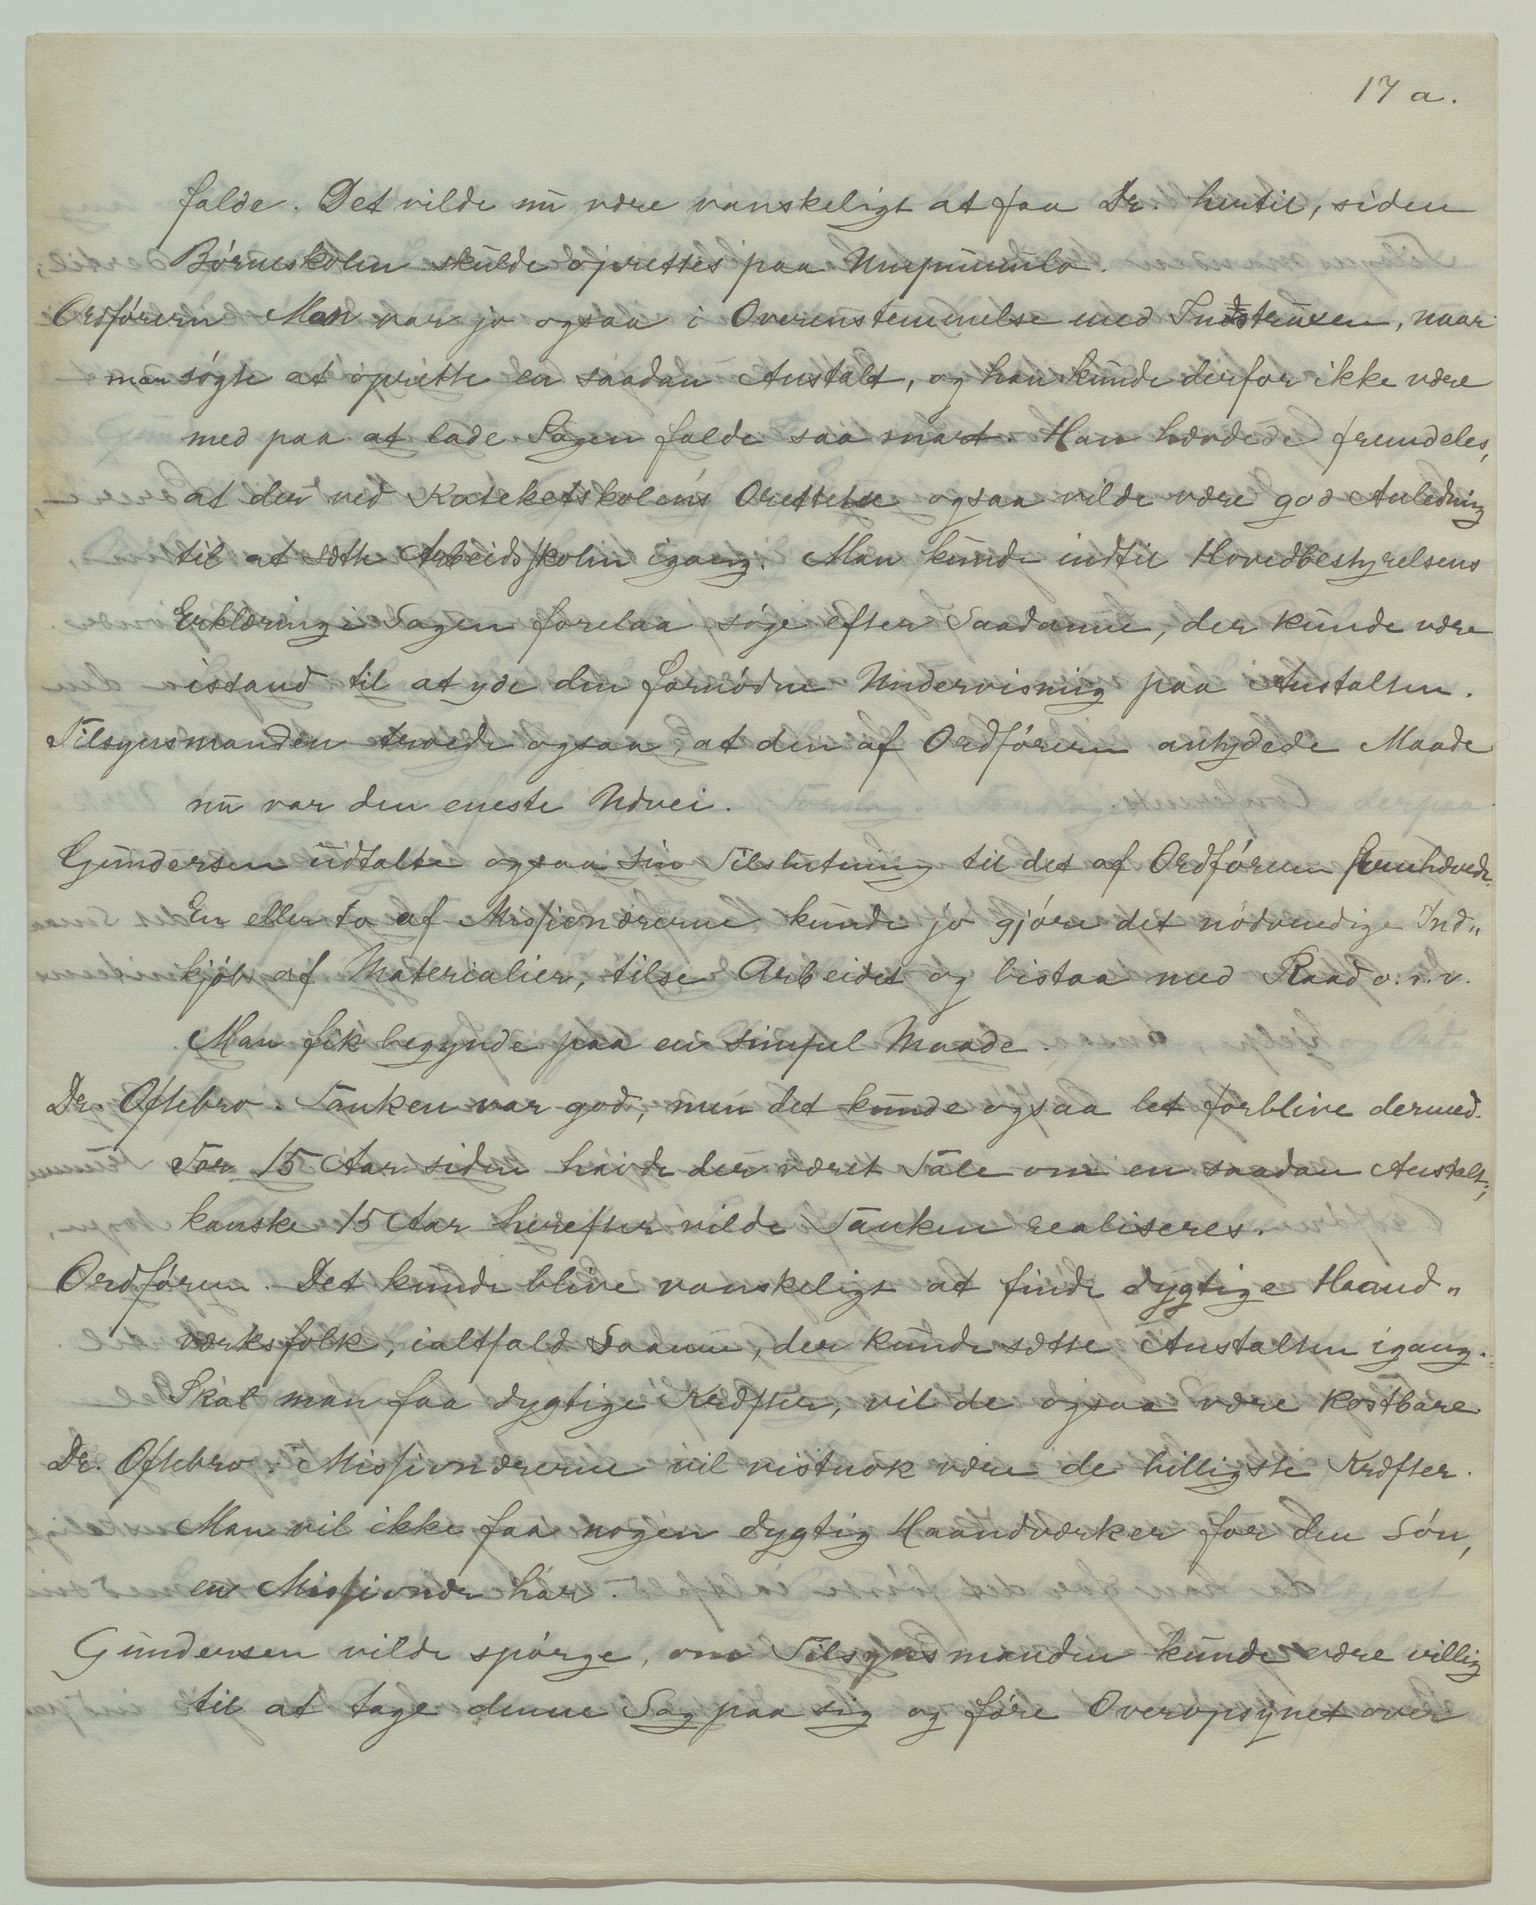 17 a.
falde. Det vilde nu være vanskeligt at faa Dr. hertil, siden
Börneskolen skulde oprettes paa Umpumulo.
Ordföreren Man var jo ogsaa i Overensstemmelse med Instruxen, naar
man sögte at oprette en saadan Anstalt, og han kunde derfor ikke være
med paa at lade Sagen falde saa snart. Han hævdede fremdeles,
at der ved Kateketskolens Orettelse ogsaa vilde være god Anledning
til at sætte Arbeidsskolen igang. Man kunde indtil Hovedbestyrelsens
Erklæring i Sagen forelaa söge efter Saadanne, der kunde være
istand til at yde den fornödne Undervisning paa Anstalten.
Tilsynsmanden troede ogsaa, at den af Ordföreren antydede Maade
nu var den eneste Udvei.
Gundersen udtalte ogsaa sin Tilslutning til det af Ordföreren fremhævede.
En eller to af Missionærerne kunde jo gjöre det nödvendige Ind„
kjöb af Materialier, tilse Arbeidet og bistaa med Raad o.s.v.
Man fik begynde paa en simpel Maade.
Dr. Oftebro. Tanken var god, men det kunde ogsaa let forblive dermed.
For 15 Aar siden havde der været Tale om en saadan Anstalt;
kanske 15 Aar herefter vilde Tanken realiseres.
Ordföreren. Det kunde blive vanskeligt at finde dygtige Haand„
værksfolk, ialtfald Saanne, der kunde sætte Anstalten igang.
Skal man faa dygtige Kræfter, vil de ogsaa være kostbare
Dr. Oftebro. Missionærerne vil vistnok være de billigste Kræfter.
Man vil ikke faa nogen dygtig Haandværker for den Lön,
en Missionær har.
Gundersen vilde spörge, om Tilsynsmanden kunde være villig
til at tage denne Sag paa sig og före Overopsynet over